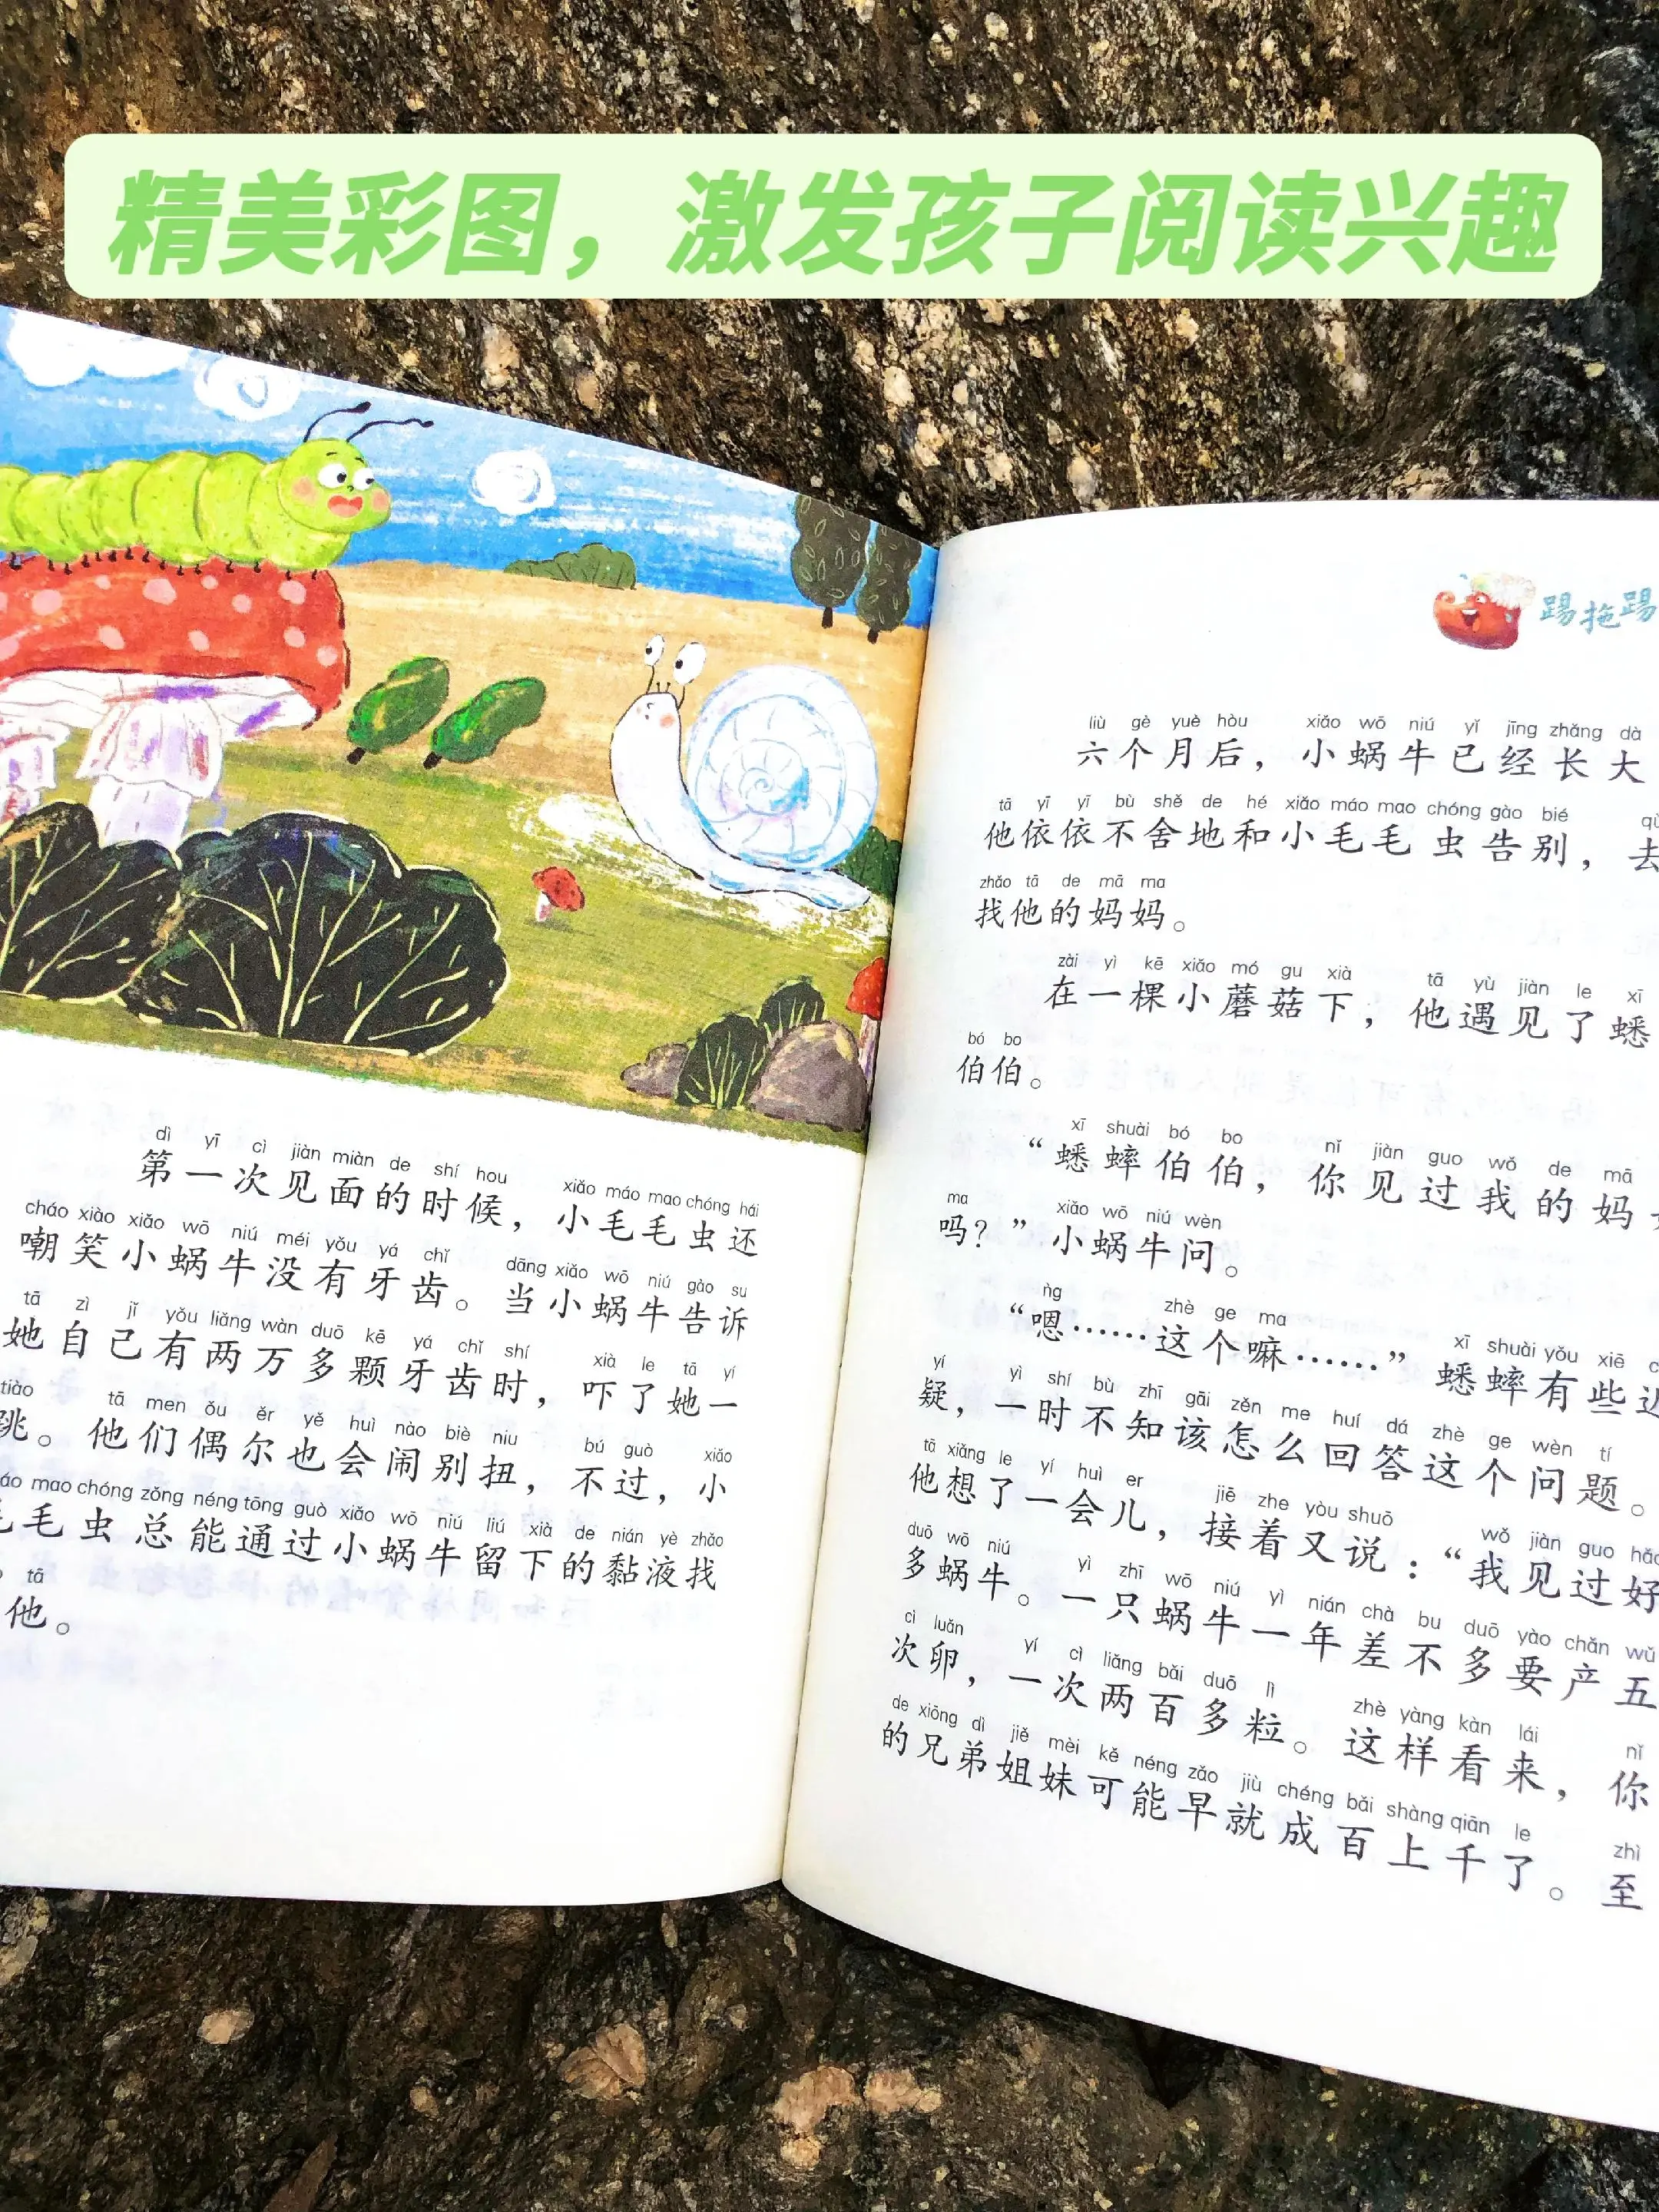 精美彩图，激发孩子阅读兴趣
dì yī cì jiàn miàn de shí hou xiǎo máo mao chóng hái
第一次见面的时候，小毛毛虫还
cháo xiào xiǎo wō niú méi yǒu yá chǐ dāng xiǎo wō niú gào su
嘲笑小蜗牛没有牙齿。当小蜗牛告诉
tā zì jǐ yǒu liǎng wàn duō kē yá chǐ shí xià le tā yí
她自己有两万多颗牙齿时，吓了她一
tiào tā men ǒu ěr yě huì nào biè niu bú guò xiǎo
跳。他们偶尔也会闹别扭，不过，小
mao chóng zǒng néng tōng guò xiǎo wō niú liú xià de nián yè zhǎo
毛毛虫总能通过小蜗牛留下的黏液找
tā
他。
踢拖踢
liù gè yuè hòu xiǎo wō niú yǐ jīng zhǎng dà
六个月后，小蜗牛已经长大
tā yī yī bù shě de hé xiǎo máo mao chóng gào bié
他依依不舍地和小毛毛虫告别，去
zhǎo tā de mā ma
找他的妈妈。
zài yì kē xiǎo mó gu xià tā yù jiàn le xī
在一棵小蘑菇下，他遇见了蟋
bó bo
伯伯。
xī shuài bó bo nǐ jiàn guo wǒ de mā
“蟋蟀伯伯，你见过我的妈
ma xiǎo wō niú wèn
吗？”小蜗牛问。
ǹg zhè ge ma xī shuài yǒu xiē
“嗯……这个嘛……”蟋蟀有些
yí yì shí bù zhī gāi zěn me huí dá zhè ge wèn tí
疑，一时不知该怎么回答这个问题。
tā xiǎng le yí huì er jiē zhe yòu shuō wǒ jiàn guo
他想了一会儿，接着又说：“我见过好
duō wō niú yì zhī wō niú yì nián chà bu duō yào chǎn wǔ
多蜗牛。一只蜗牛一年差不多要产五
cì luǎn yí cì liǎng bǎi duō lì zhè yàng kàn lái nǐ
次卵，一次两百多粒。这样看来，你
de xiōng dì jiě mèi kě néng zǎo jiù chéng bǎi shàng qiān le zhì
的兄弟姐妹可能早就成百上千了。至